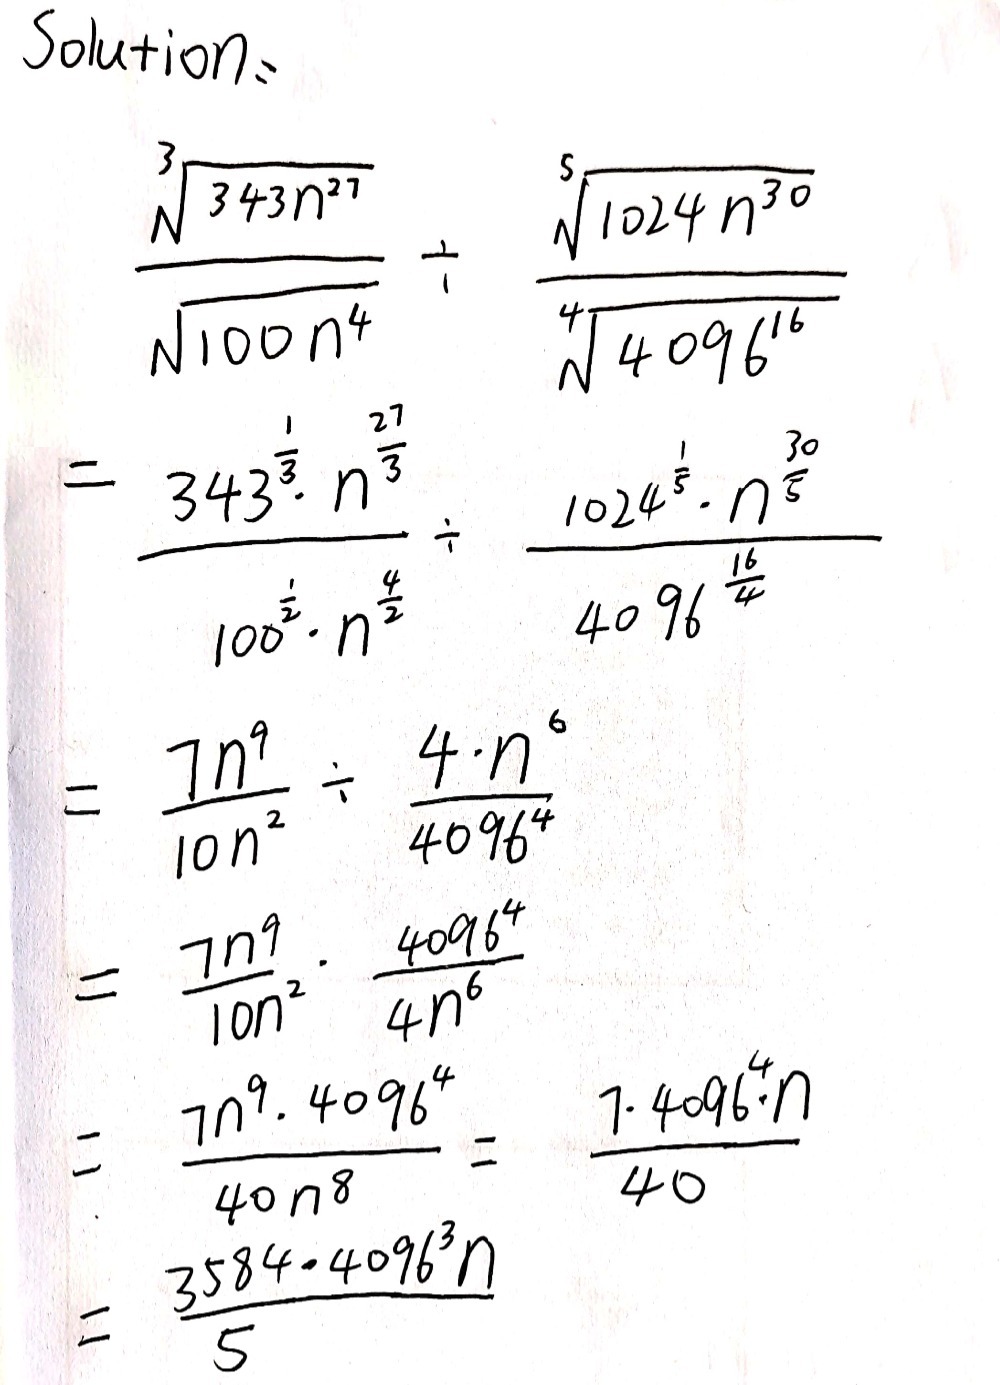 Solution:
∛(343n²⁷) / √(100n⁴) ÷ ⁵√(1024n³⁰) / ⁴√(4096¹⁶)
= (343^(1/3) · n^(27/3)) / (100^(1/2) · n^(4/2)) ÷ (1024^(1/5) · n^(30/5)) / 4096^(16/4)
= 7n⁹ / 10n² ÷ 4·n⁶ / 4096⁴
= 7n⁹ / 10n² · 4096⁴ / 4n⁶
= 7n⁹·4096⁴ / 40n⁸ = 7·4096⁴·n / 40
= 3584·4096³n / 5